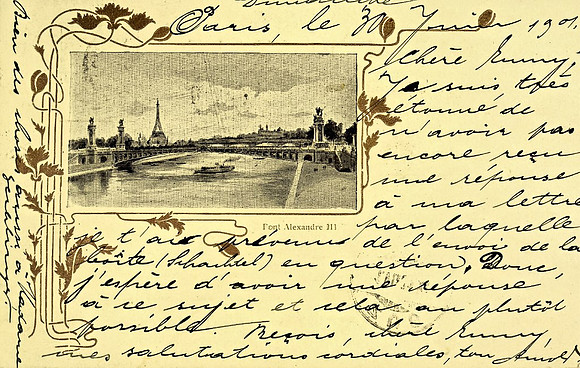 Dimanche
Paris, le 30 Juin 1901,
Chère Emmy,
Je suis très
étonné de
n'avoir pas
encore reçu
une réponse
à ma lettre
par laquelle
Pont Alexandre III
je t'ai prévenue de l'envoi de la
boîte (Schachtel) en question. Donc,
j'espère d'avoir une réponse
à ce sujet et cela au plutôt
possible. Reçois, chère Emmy,
mes salutations cordiales, ton Arnold.
Bien des choses aussi à Madame